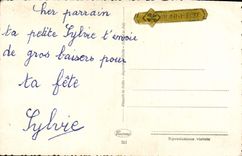 cher parrain
ta petite Sylvie t'envoie
de gros baisers pour
ta fête
Sylvie
Reproduction interdite